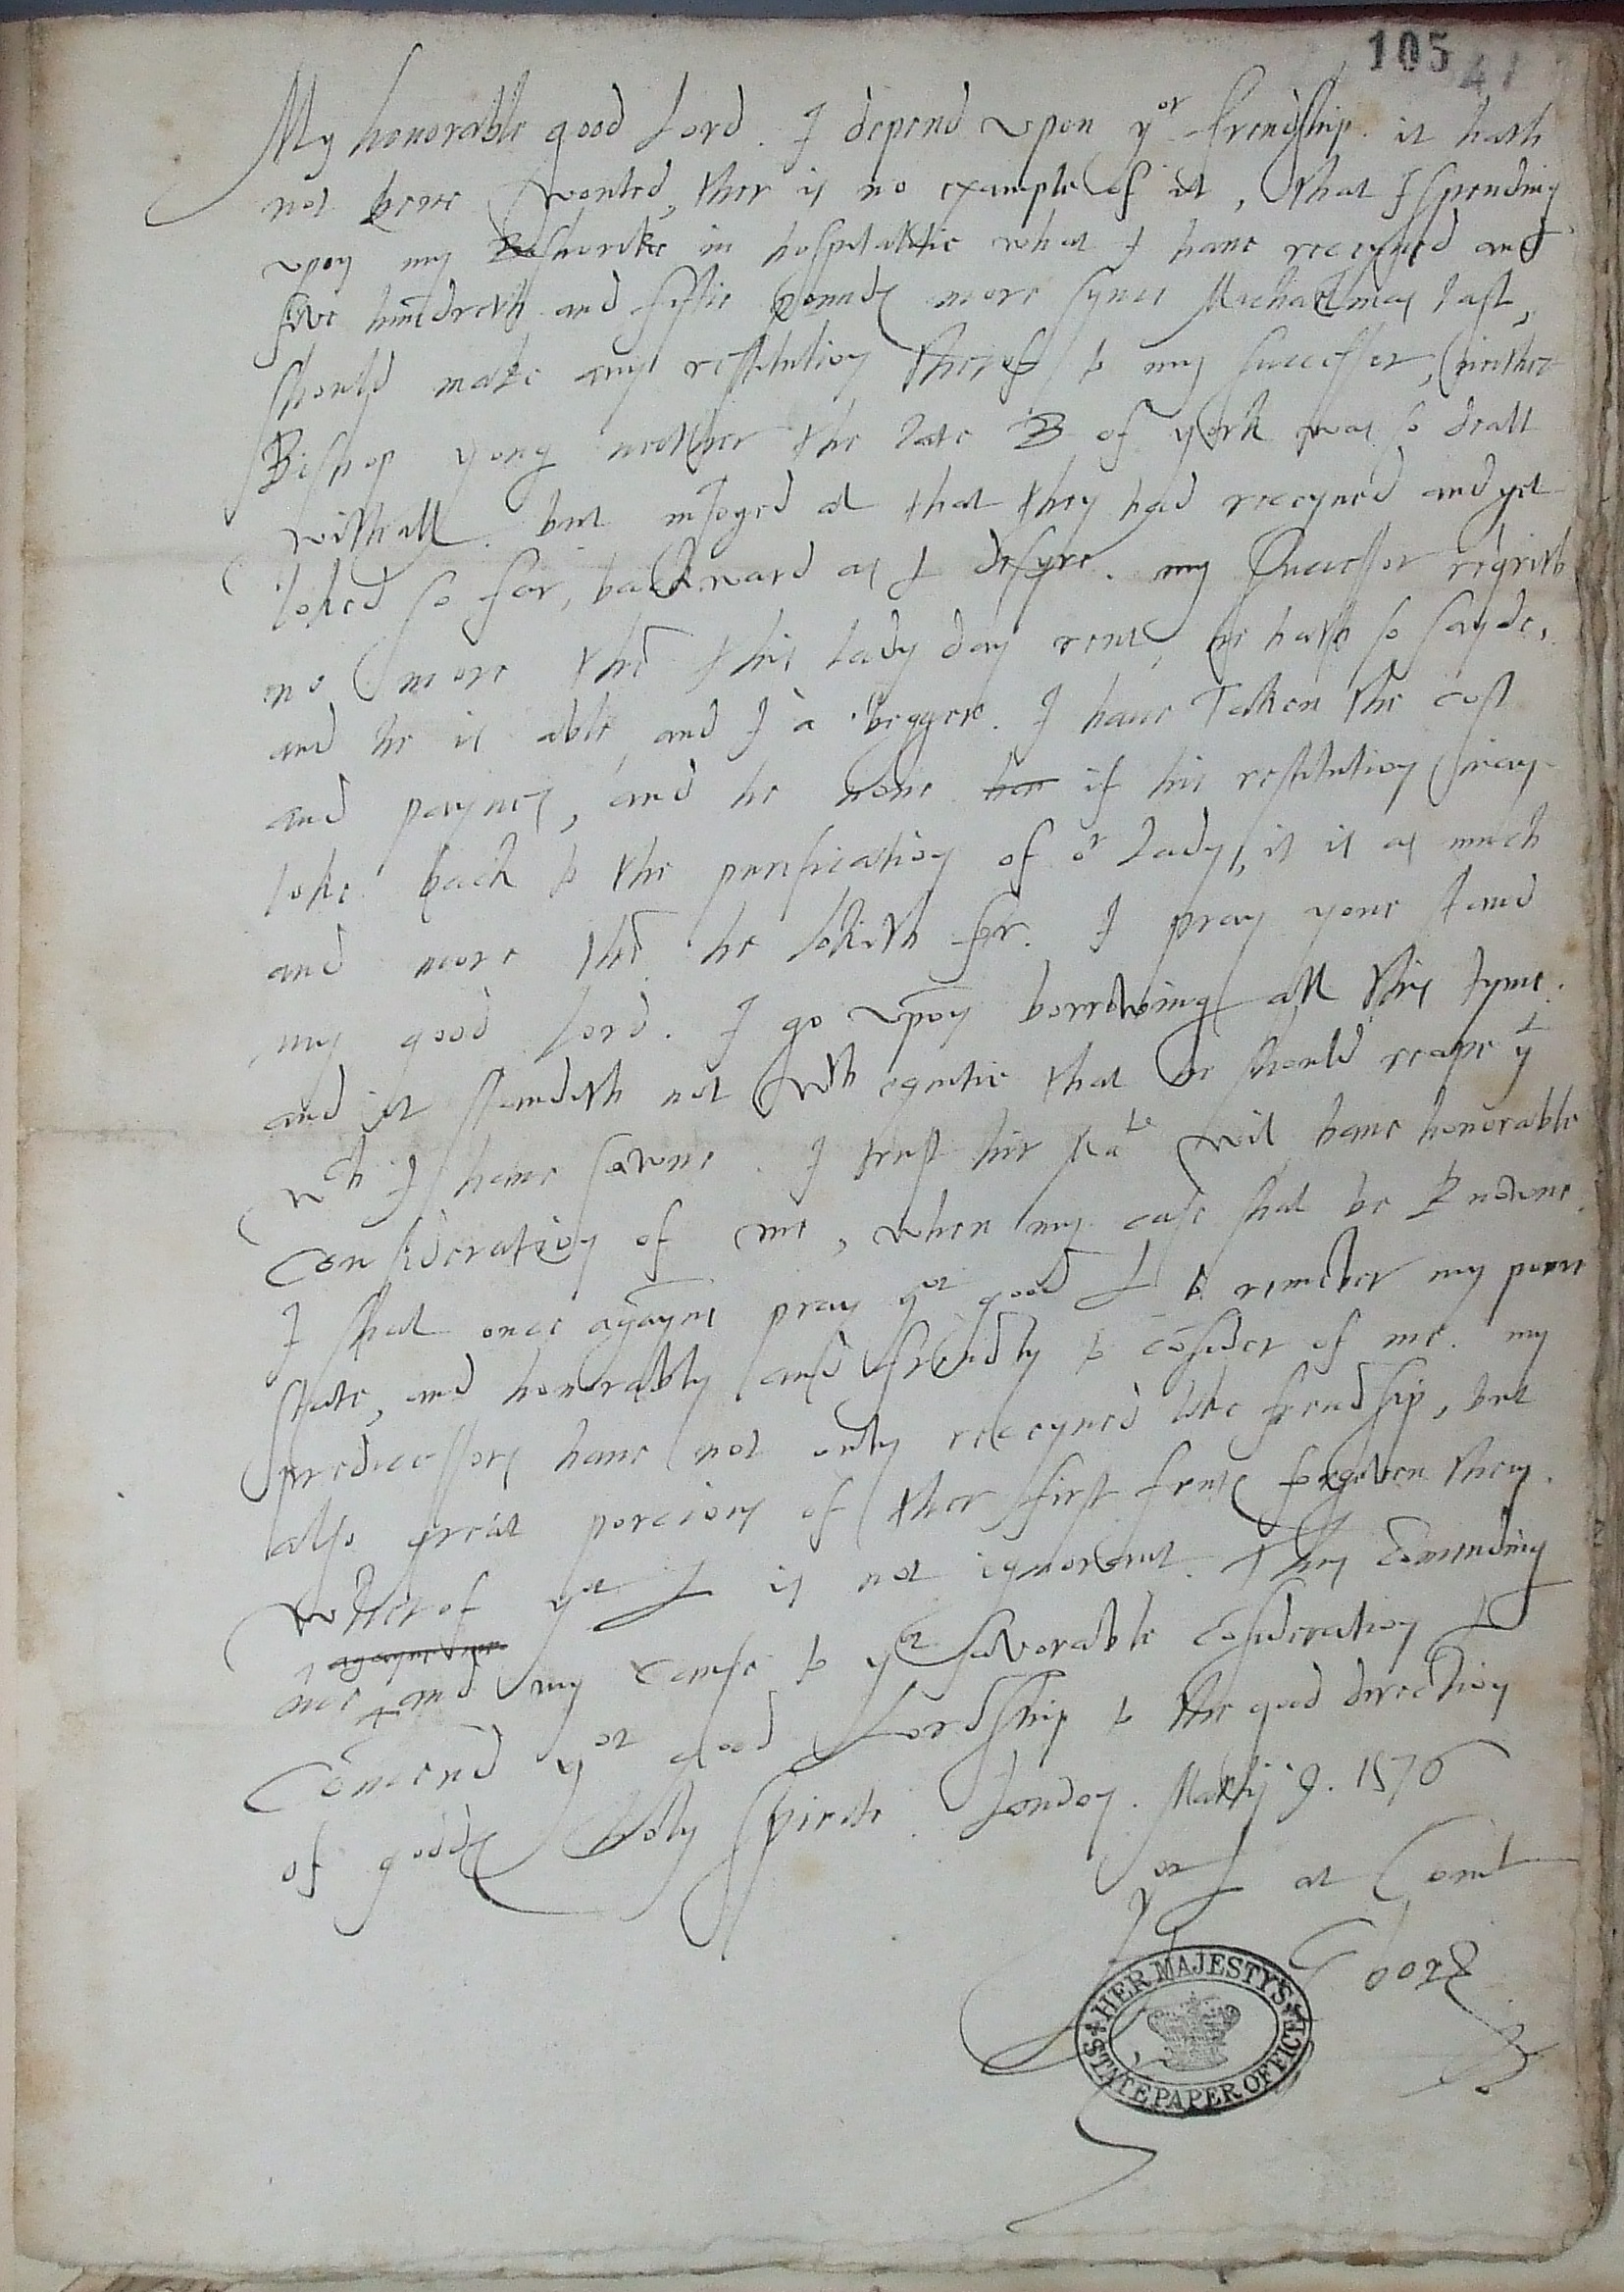 105 41
My honorable good Lord. I depend vpon yor frendship. it hath
not bene wonted, ther is no example of it, that I spending
vpon my in hospitalitie what I haue receyued and
five hundreth and fiftie pounds more synce Michaelmas last,
should make any restitution therof to my successor, neither
Bishop yong neither the late B of york was so dealt
withall. but inioyed al that they had receyued and yet
loked so far, backward as I desyre. my Successor reqrith
no more thē this lady day rent, he hath so sayde,
and he is able, and I a begger. I haue taken the cost
and paynes, and he none if his restitution may
loke back to the purification of or Lady, it is as much
and more thē he lokith for. I pray youe stand
my good Lord. I go vpon borrowing all this tyme.
and it standith not wth equitie that he should reape yt
wch I haue sowne. I trust hir Matie wil haue honorable
consideration of me, when my case shal be knowne.
I shal once agayne pray yor good L to remēber my poore
state, and honorably and frendly to cōsider of me. my
predicessors haue not only receyued like frendship, but
also great porcions of ther first fruts forgeven them.
Wherof yor L is not ignorant. Thus cōmending
agayne
me and my cause to yor favorable cōsideration I
Cōmend yor good Lordship to the good direction
of godds holy spirite. London. Martij 9. 1576
yor L at Comt
Ebor
HER MAJESTY'S STATE PAPER OFFICE